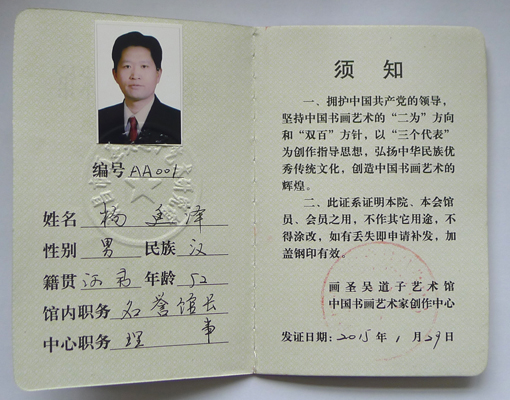 编号 AA001
姓名 杨廷泽
性别 男 民族 汉
籍贯 河南 年龄 52
馆内职务 名誉馆长
中心职务 理事
须 知
一、拥护中国共产党的领导，
坚持中国书画艺术的“二为”方向
和“双百”方针，以“三个代表”
为创作指导思想，弘扬中华民族优
秀传统文化，创造中国书画艺术的
辉煌。
二、此证系证明本院、本会馆
员、会员之用，不作其它用途，不
得涂改，如有丢失即申请补发，加
盖钢印有效。
画圣吴道子艺术馆
中国书画艺术家创作中心
发证日期：2015 年 1 月 29 日